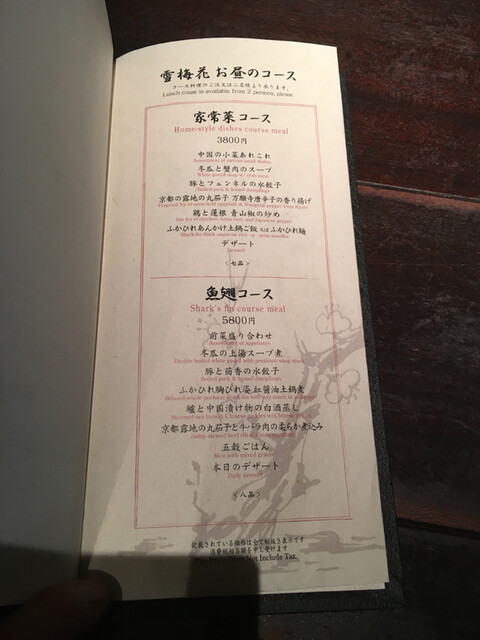 雪梅花 お昼のコース
コース料理のご注文は二名様より承ります。
Lunch couse is available from 2 persons, please
家常菜コース
Home-style dishes course meal
3800円
中国の小菜あれこれ
Assortment of various small dishes
冬瓜と蟹肉のスープ
White gourd soup w/ crab meat
豚とフェンネルの水餃子
Boiled pork & fennel dumplings
京都の露地の丸茄子 万願寺唐辛子の香り揚げ
Fragrant fry of open-field eggplant & Manganji pepper from Kyoto
鶏と蓮根 青山椒の炒め
Stir fry of chicken, lotus root and Japanese pepper
ふかひれあんかけ土鍋ご飯 又は ふかひれ麺
Shark fin thick sauce on rice or soup noodles
デザート
Dessert
〈七品〉
魚翅コース
Shark's fin course meal
5800円
前菜盛り合わせ
Assortment of appetizers
冬瓜の上湯スープ煮
Double boiled white gourd with precious soup
豚と茴香の水餃子
Boiled pork & fennel dumplings
ふかひれ胸びれ姿 紅醤油土鍋煮
鱸と中国漬け物の白酒蒸し
京都露地の丸茄子と牛バラ肉の柔らか煮込み
五穀ごはん
Rice with mixed grains
本日のデザート
Daily dessert
〈八品〉
記載されている価格は全て税抜き表示です
消費税相当額を申し受けます
Not Include Tax.